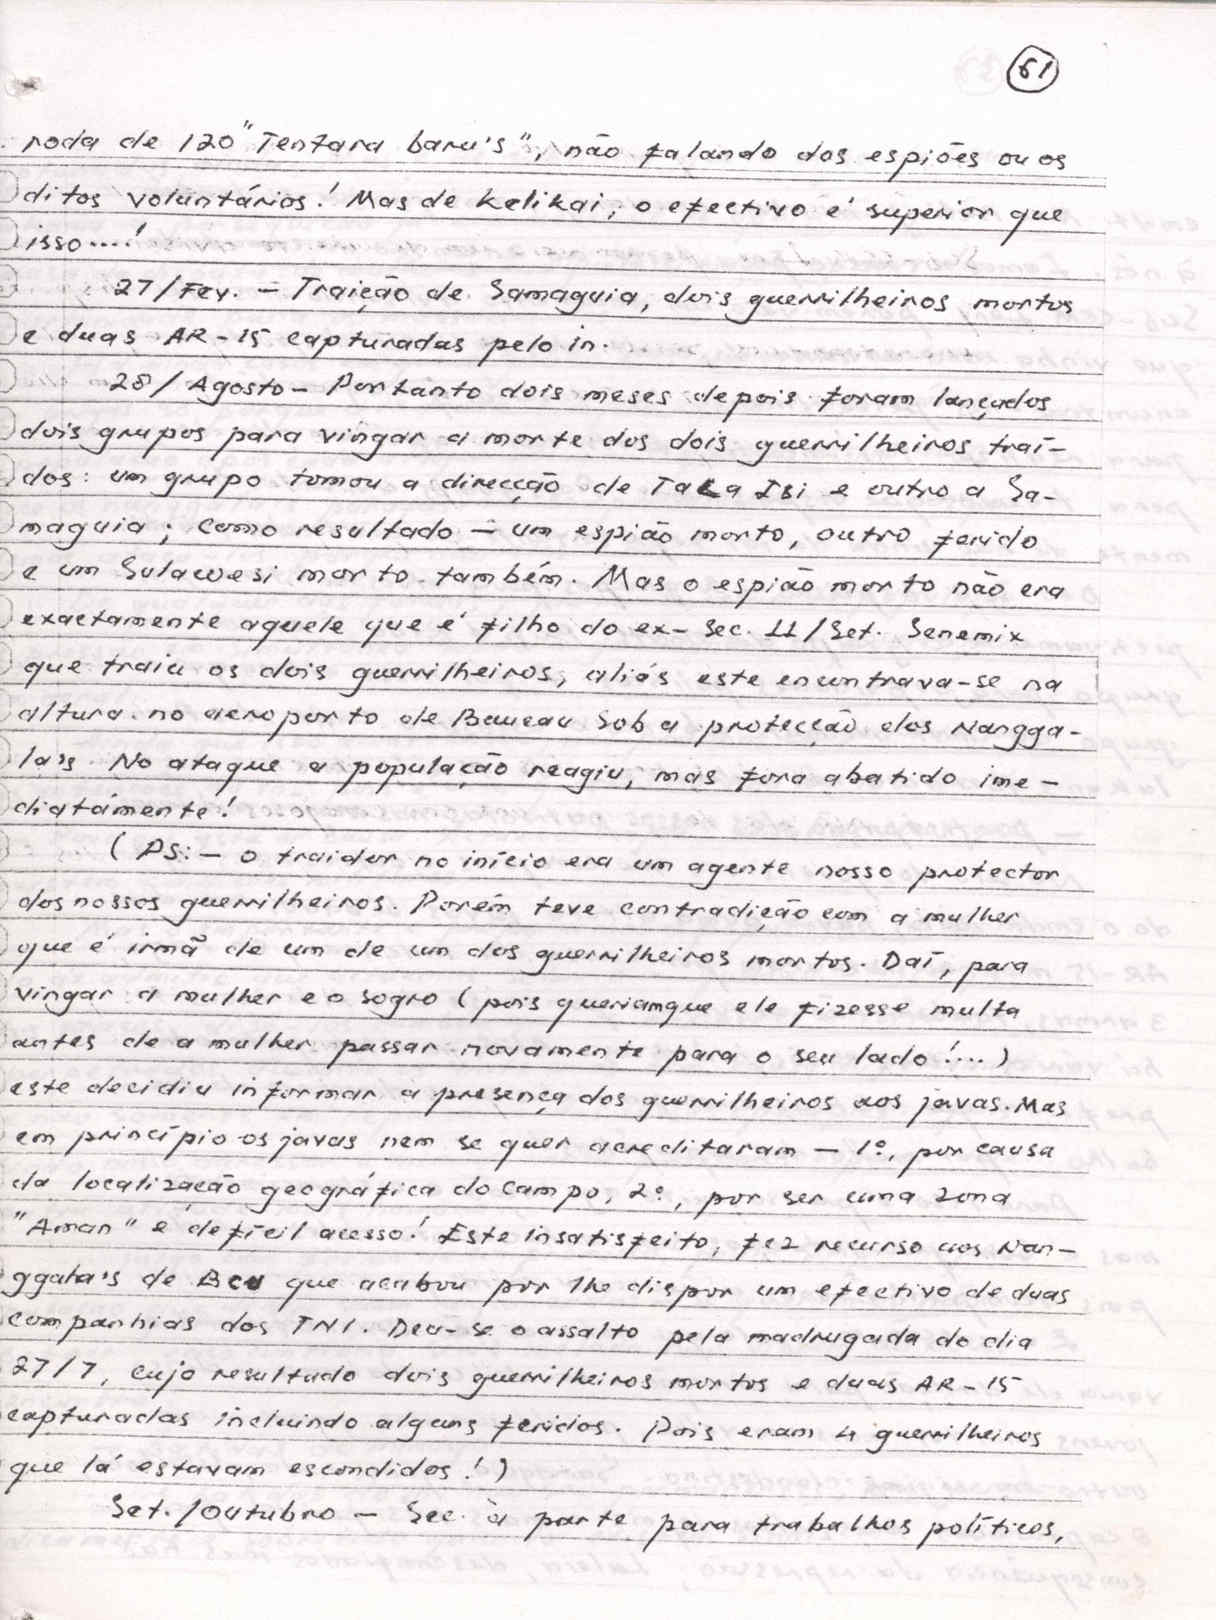 61
roda de 120 "Tentara baru's", não falando dos espiões ou os
ditos voluntários! Mas de Kelikai, o efectivo é superior que
isso....!
27/Fev. - Traição de Samaguia, dois guerrilheiros mortos
e duas AR-15 capturadas pelo in.
28/Agosto - Portanto dois meses depois foram lançados
dois grupos para vingar a morte dos dois guerrilheiros traí-
dos: um grupo tomou a direcção de Tala Isi e outro a Sa-
maguia; como resultado - um espião morto, outro ferido
e um Sulawesi morto também. Mas o espião morto não era
exactamente aquele que é filho do ex-Sec. 11/Set. Senemix
que traiu os dois guerrilheiros, aliás este encontrava-se na
altura no aeroporto de Baucau sob a protecção dos Nangga-
la's. No ataque a população reagiu, mas fora abatido ime-
diatámente!
(PS: - O traidor no início era um agente nosso protector
dos nossos guerrilheiros. Porém teve contradição com a mulher
que é irmã de um de um dos guerrilheiros mortos. Daí, para
vingar a mulher e o sogro (pois queriam que ele fizesse multa
antes de a mulher passar novamente para o seu lado!...)
este decidiu informar a presença dos guerrilheiros aos javas. Mas
em princípio os javas nem se quer acreditaram - 1º, por causa
da localização geográfica do campo, 2º, por ser uma zona
"Aman" e defícil acesso! Este insatisfeito, fez recurso aos Nan-
ggala's de Bcu que acabou por lhe dispor um efectivo de duas
companhias dos TNI. Deu-se o assalto pela madrugada do dia
27/7, cujo resultado dois guerrilheiros mortos e duas AR-15
capturadas incluindo alguns feridos. Pois eram 4 guerrilheiros
que lá estavam escondidos!)
Set./Outubro - Sec. à parte para trabalhos políticos,